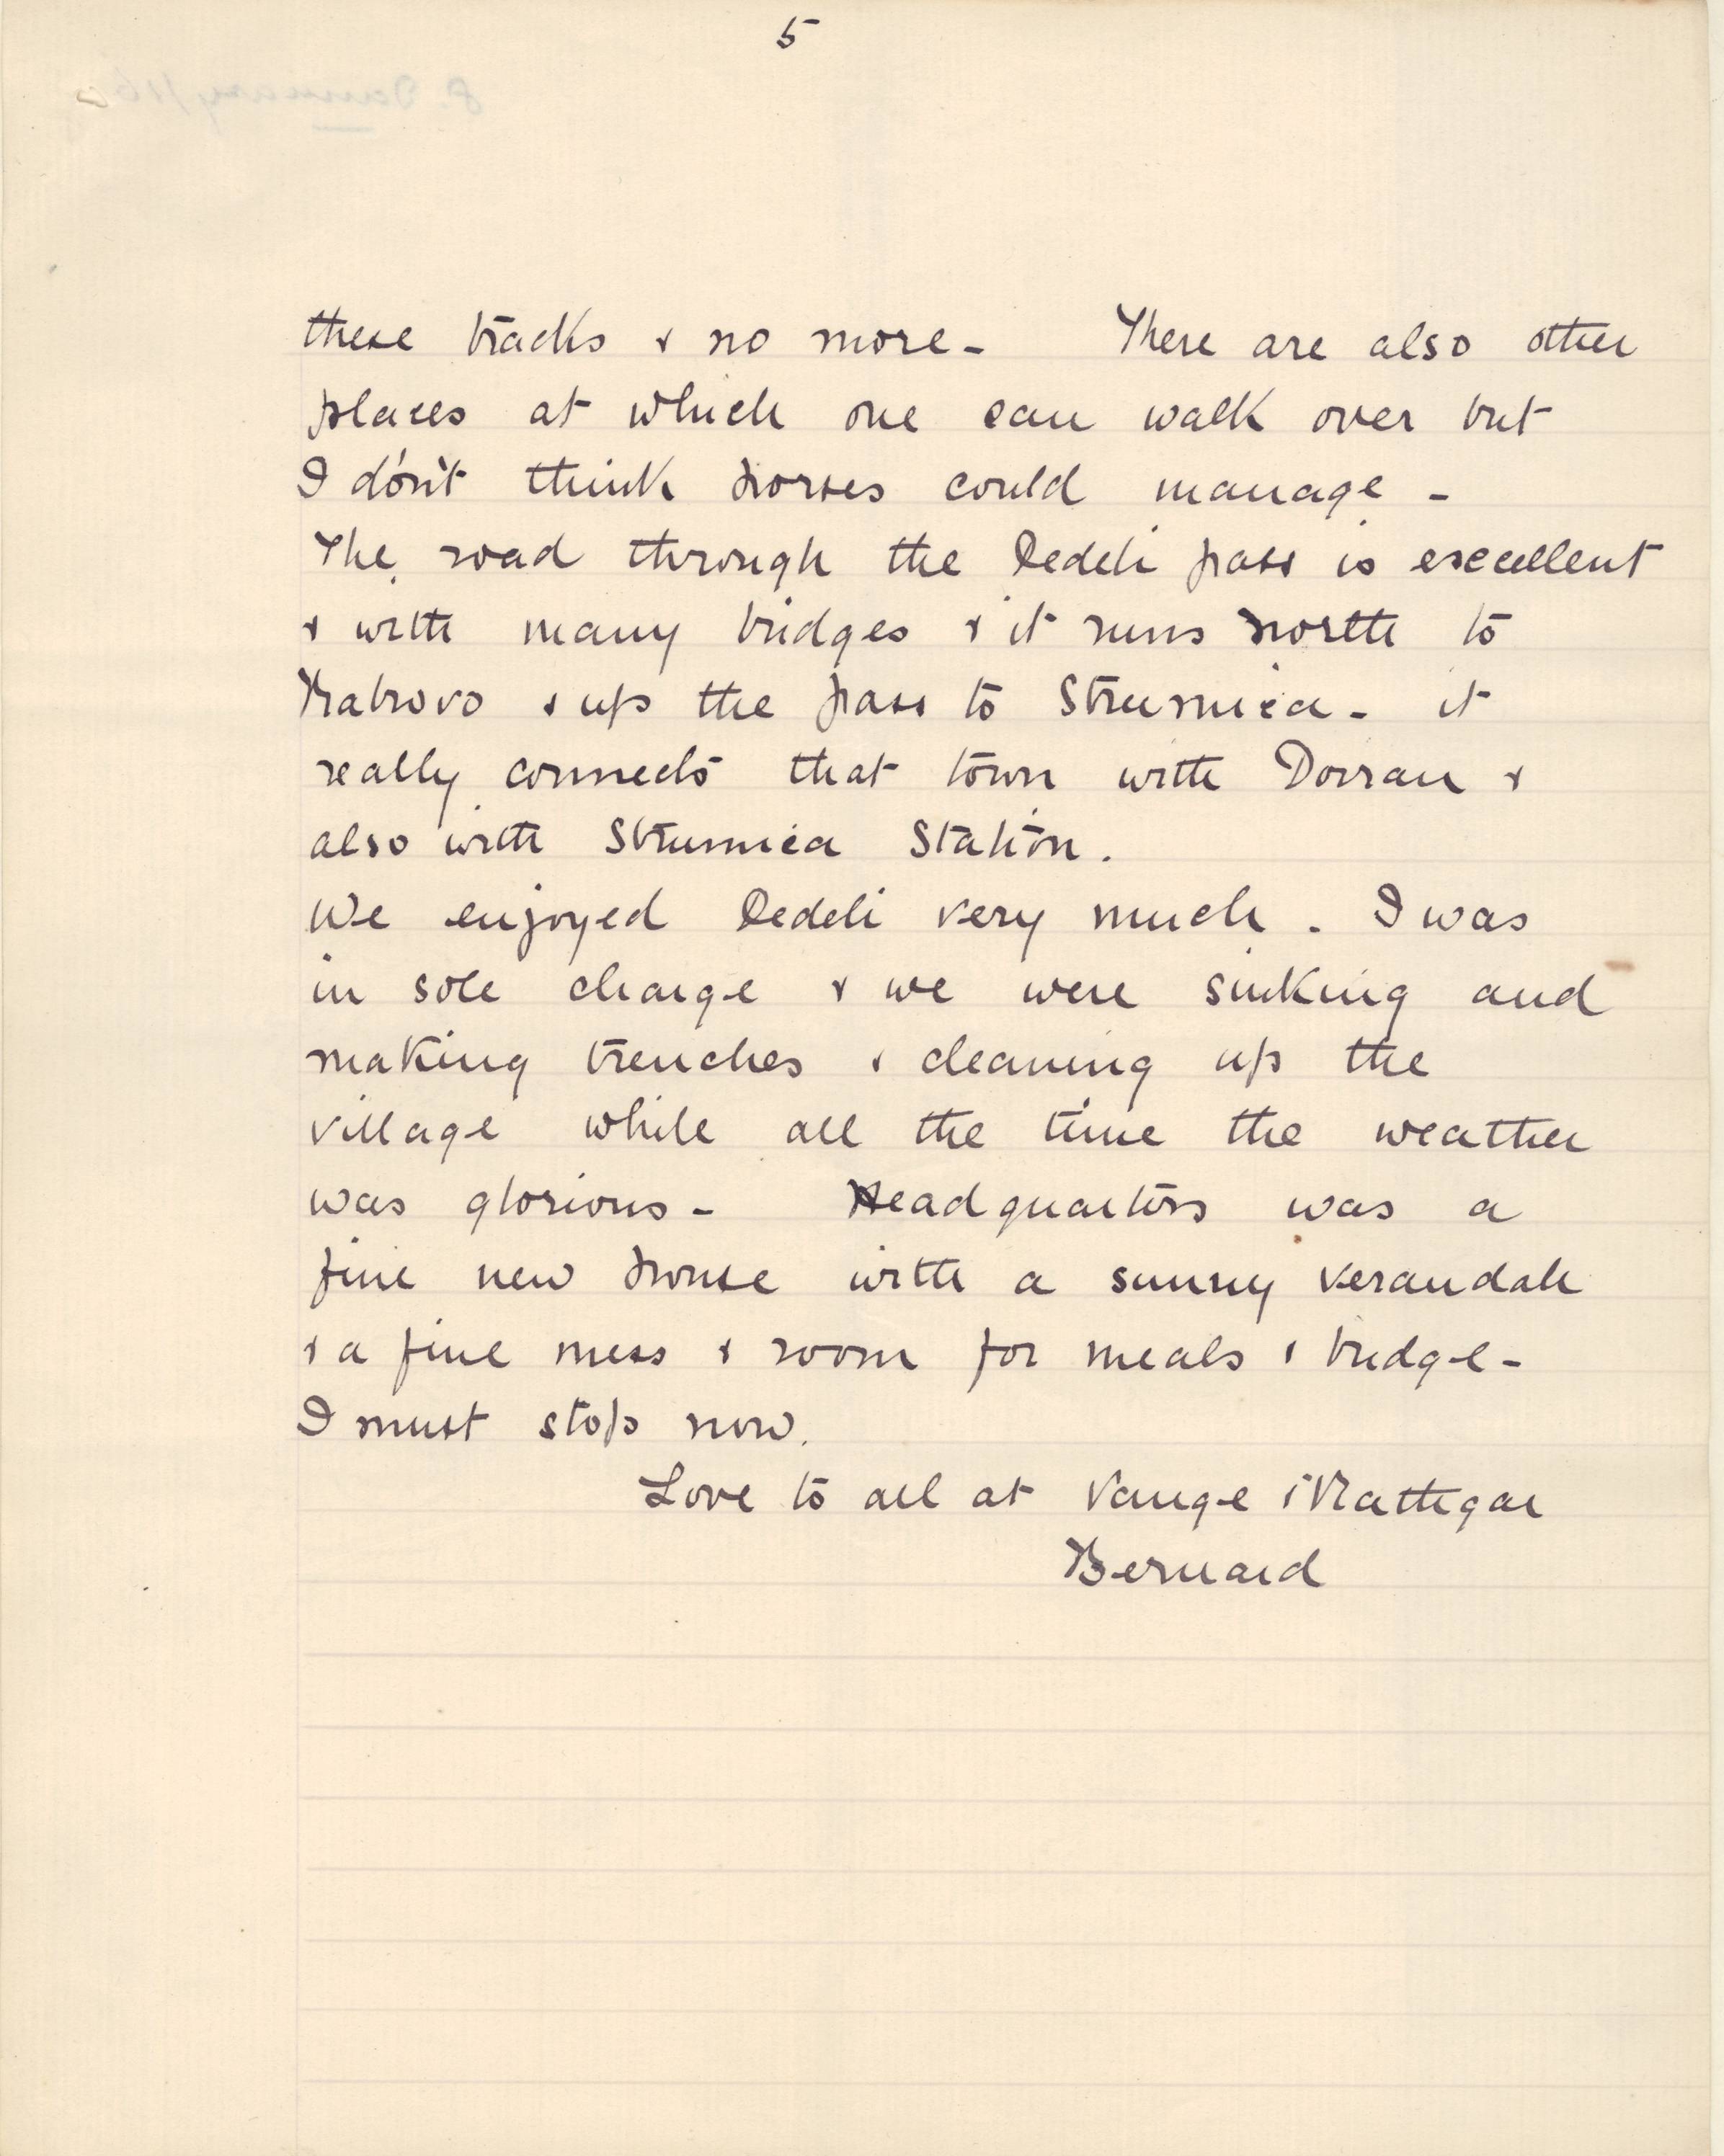 5
these tracks & no more - There are also other
places at which one can walk over but
I don't think horses could manage -
The road through the Dedeli pass is excellent
& with many bridges & it runs north to
Rabrovo & up the pass to Strumica - it
really connects that town with Doiran &
also with Strumica Station.
We enjoyed Dedeli very much. I was
in sole charge & we were sinking and
making trenches & cleaning up the
village while all the time the weather
was glorious - Headquarters was a
fine new house with a sunny verandah
& a fine mess & room for meals & bridge -
I must stop now.
Love to all at Vange &
Bernard